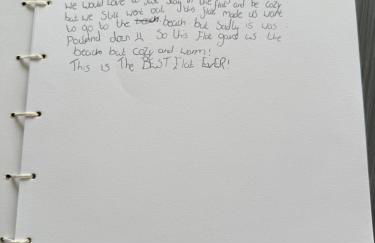 we would love to just stay in the flat and be cozy
but we still went out. This flat made us want
to go to the beach. but sadly is was
Pouring down!! So this flat gave us the
beach but cozy and warm!
This is The BEST Flat EVER!